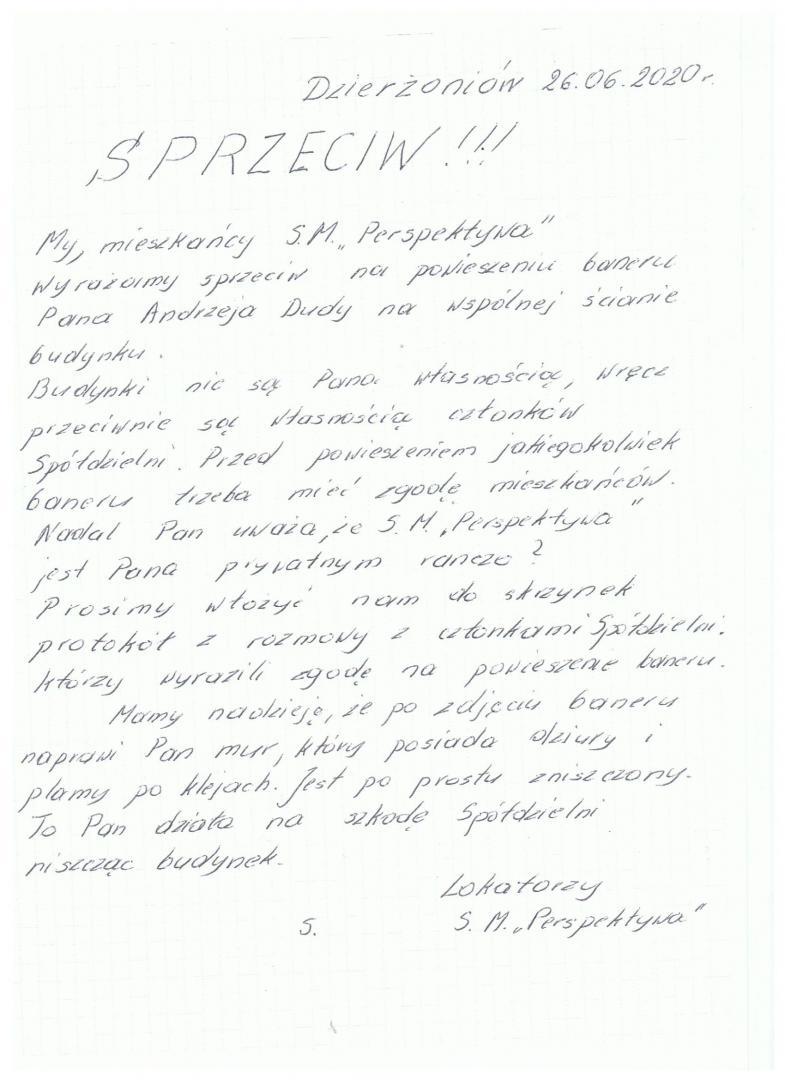 Dzierżoniów 26.06.2020r.
SPRZECIW!!!
My, mieszkańcy S.M. „Perspektywa"
wyrażamy sprzeciw na powieszeniu baneru
Pana Andrzeja Dudy na wspólnej ścianie
budynku.
Budynki nie są Pana własnością, wręcz
przeciwnie są własnością członków
Spółdzielni. Przed powieszeniem jakiegokolwiek
baneru trzeba mieć zgodę mieszkańców.
Nadal Pan uważa, że S.M. „Perspektywa"
jest Pana prywatnym ranczo?
Prosimy włożyć nam do skrzynek
protokół z rozmowy z członkami Spółdzielni.
którzy wyrazili zgodę na powieszenie baneru.
Mamy nadzieję, że po zdjęciu baneru
naprawi Pan mur, który posiada dziury i
plamy po klejach. Jest po prostu zniszczony.
To Pan działa na szkodę Spółdzielni
niszcząc budynek.
Lokatorzy
S.M. „Perspektywa"
5.